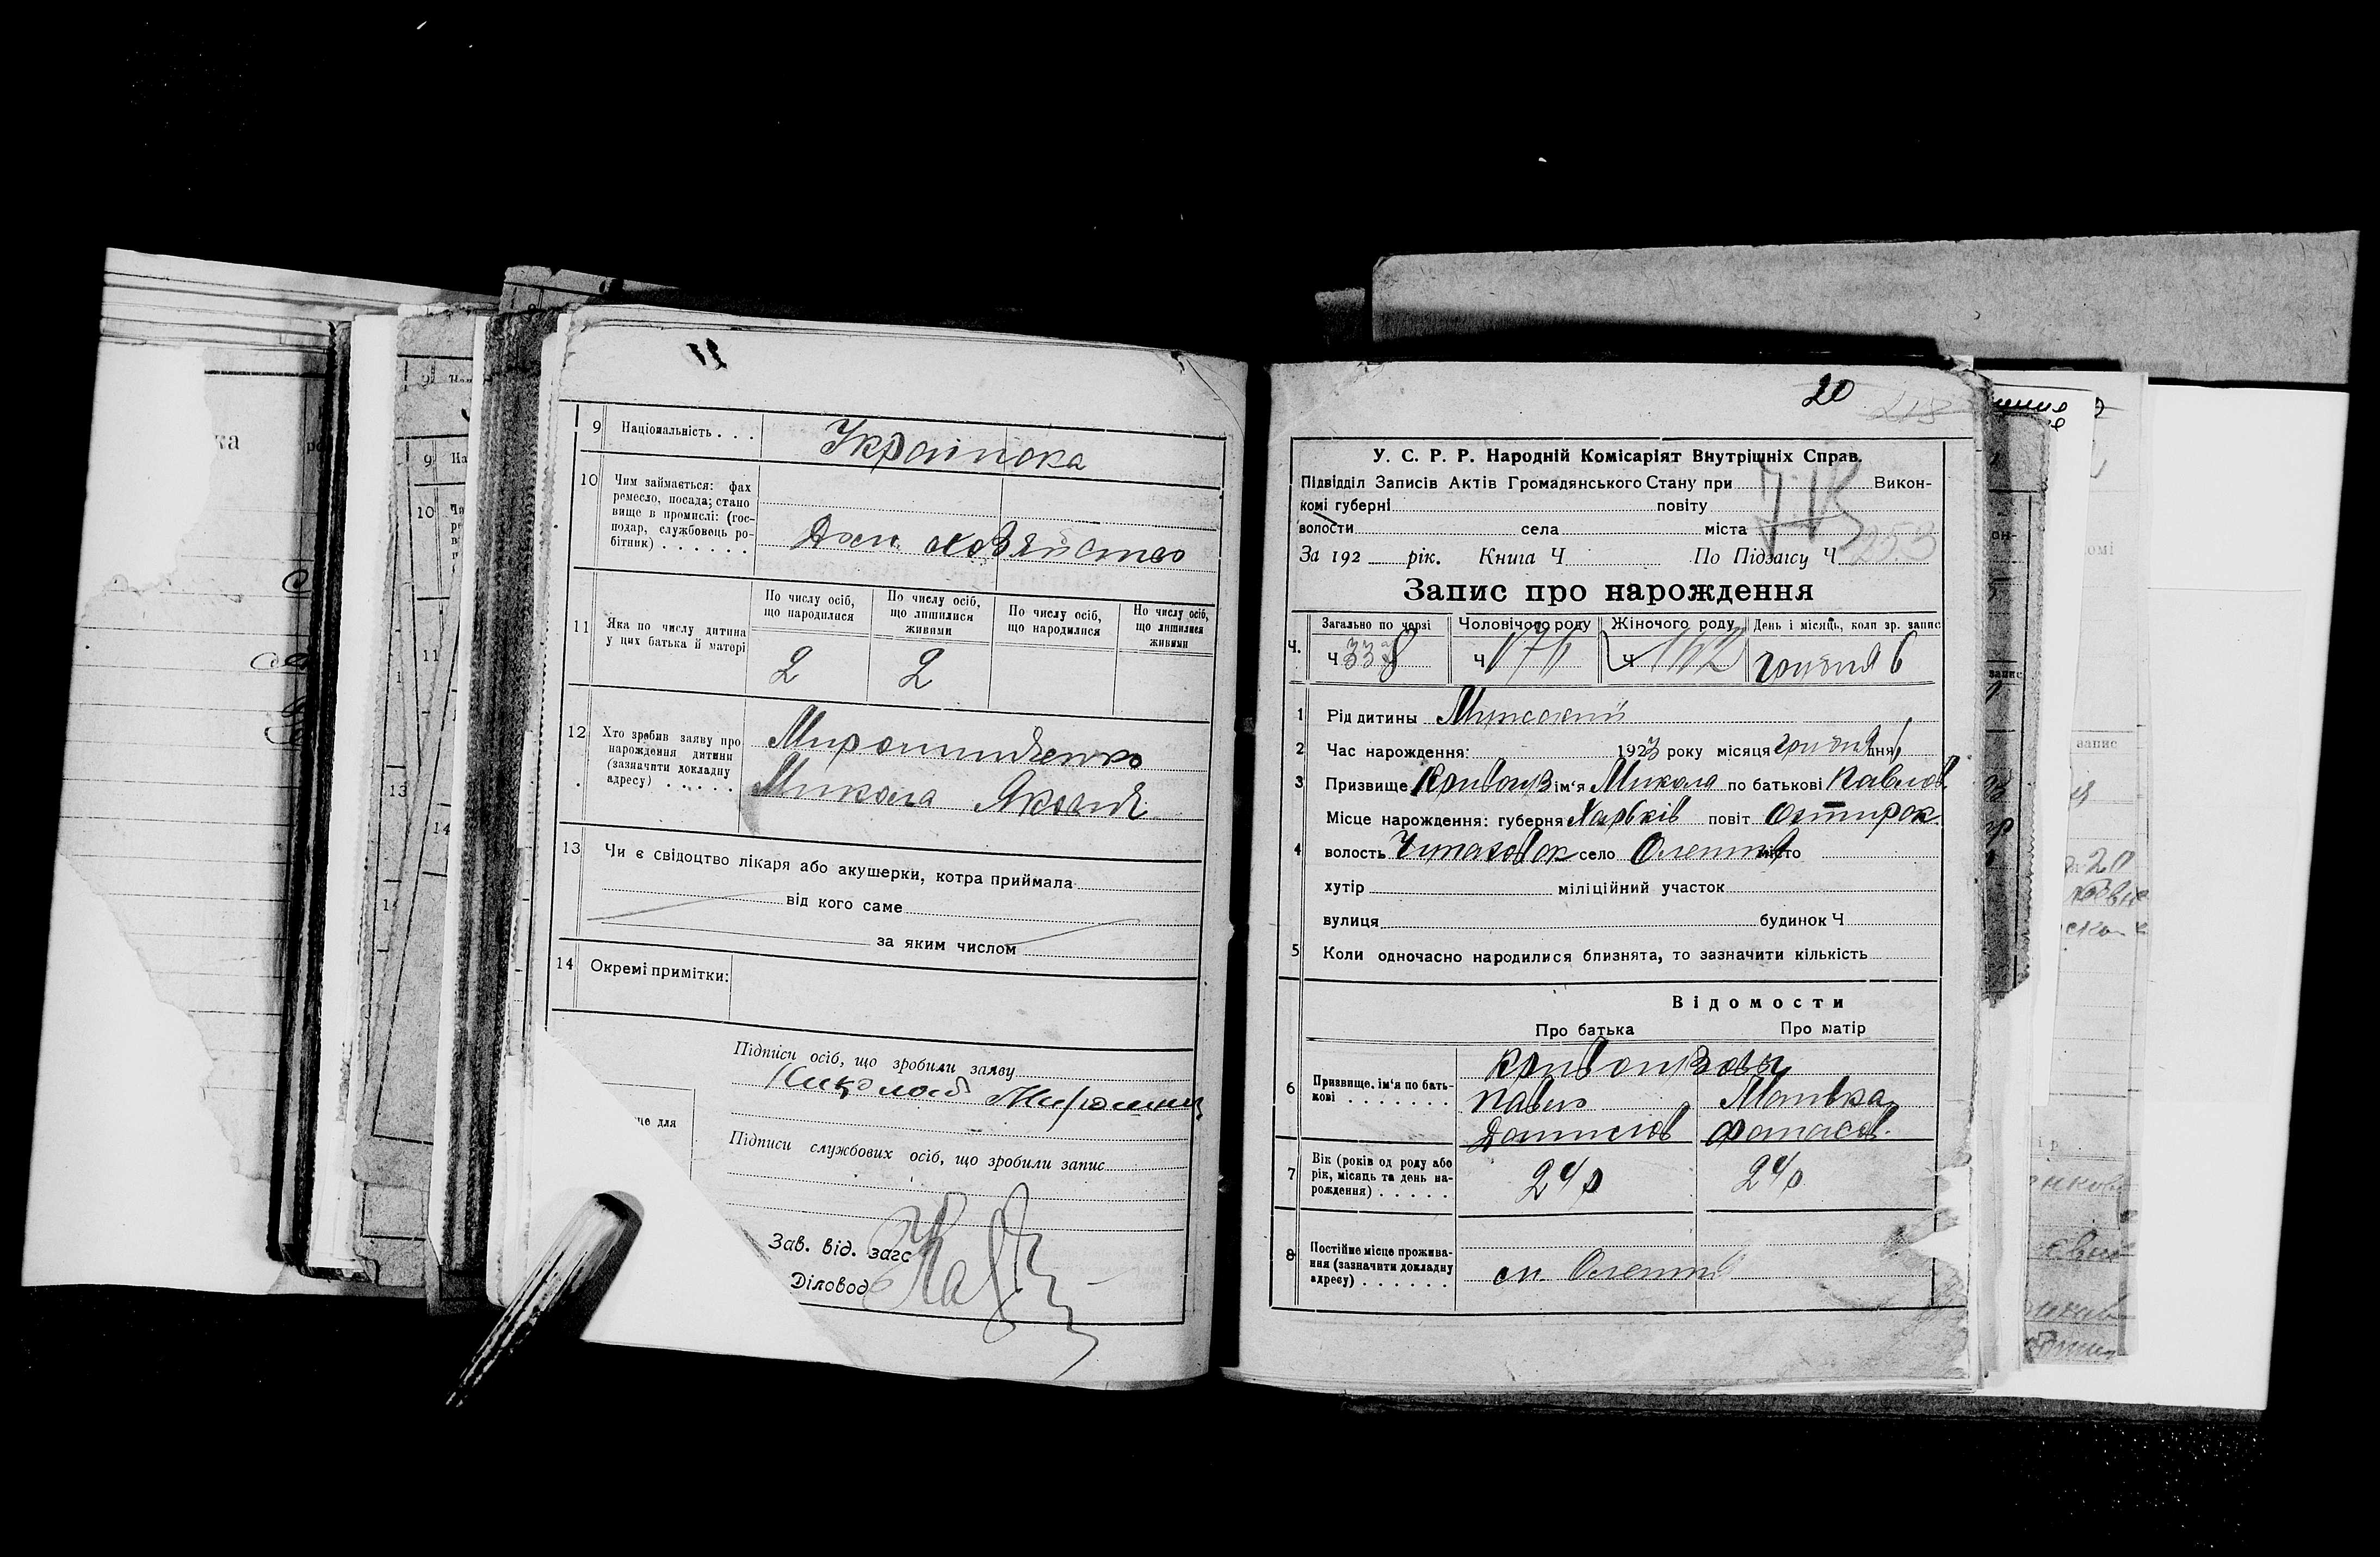 9 Національність . . .
Українська
10 Чим займається: фах
ремесло, посада; стано
вище в промислі: (гос-
подар, службовець ро-
бітник) . . . . . .
Дом. хозяйство
11 Яка по числу дитина
у цих батька й матері
По числу осіб,
що народилися
По числу осіб,
що лишилися
живими
По числу осіб,
що народилися
Но числу осіб,
що лишилися
живими
2 2
12 Хто зробив заяву про
нарождення дитини
(зазначити докладну
адресу) . . . . .
Мирошниченко
Микола
13 Чи є свідоцтво лікаря або акушерки, котра приймала
від кого саме
за яким числом
14 Окремі примітки:
Підписи осіб, що зробили заяву
Николай
Підписи службових осіб, що зробили запис
Зав. від. загс
Діловод
20
У. С. Р. Р. Народній Комісаріят Внутрішніх Справ.
Підвідділ Записів Актів Громадянського Стану при Викон-
комі губерні повіту
волости села міста
За 192 рік. Книга Ч По Підзагсу Ч 253
Запис про нарождення
Загально по черзі Чоловічого роду Жіночого роду День і місяць, коли зр. запис
Ч. Ч 338 Ч 176 Ч 162 грудня 6
1 Рід дитини Мужский
2 Час нарождення: 1923 року місяця грудня дня
3 Призвище ім'я Микола по батькові Павлов.
Місце нарождення: губерня Харьків повіт
4 волость село місто
хутір міліційний участок
вулиця будинок Ч
5 Коли одночасно народилися близнята, то зазначити кількість
Відомости
Про батька Про матір
6 Призвище, ім'я по бать-
кові . . . . . . .
Павло
Данилов
7 Вік (років од роду або
рік, місяць та день на-
рождення) . . . . .
24 р 24 р
8 Постійне місце прожива-
ння (зазначити докладну
адресу) . . . . . .